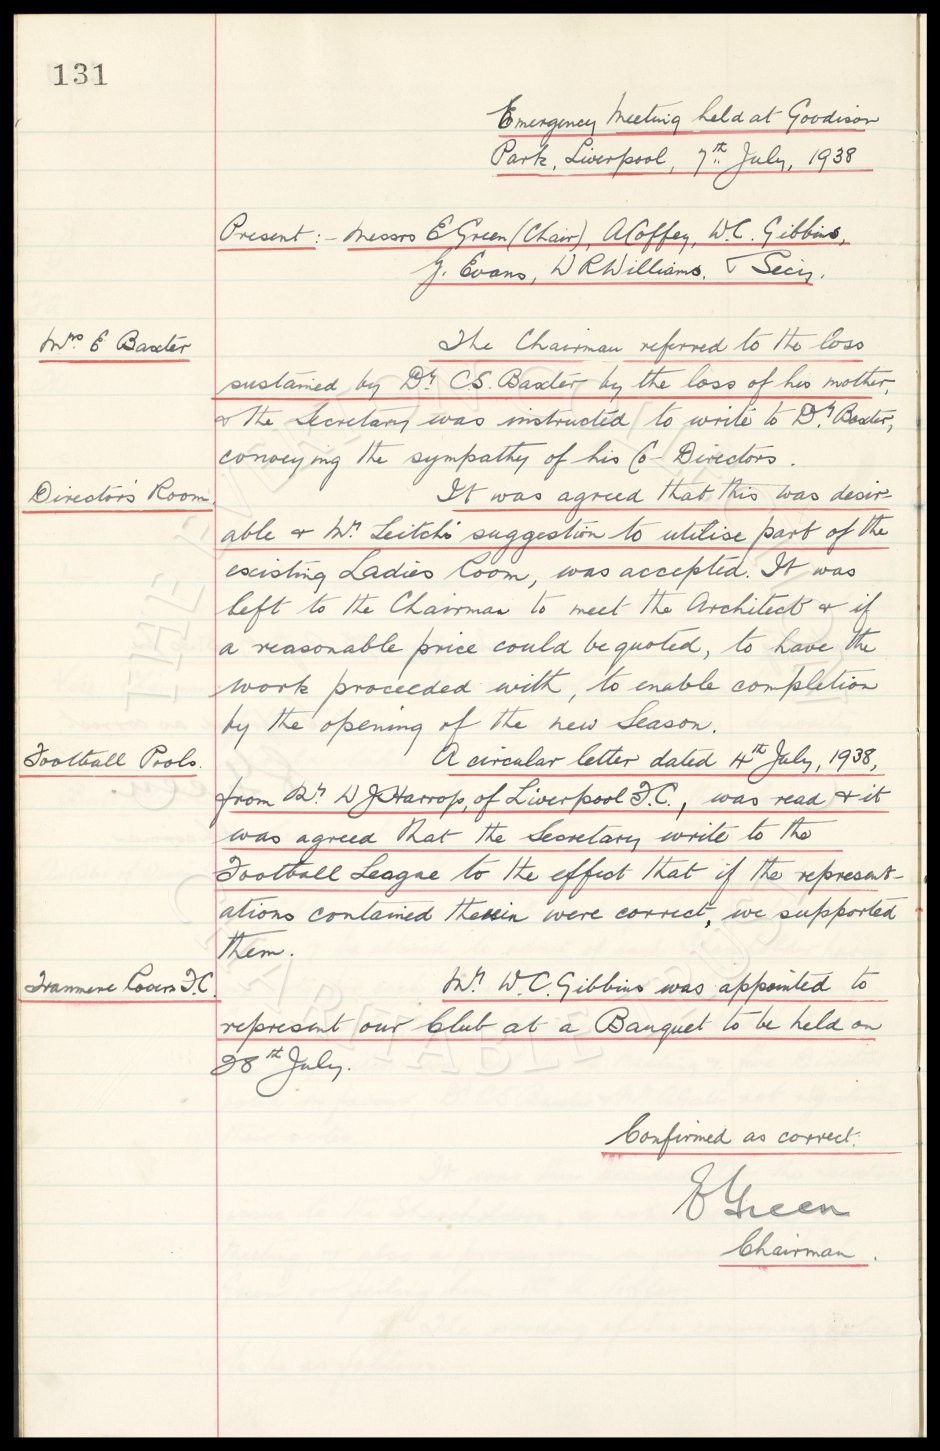 131
Emergency Meeting held at Goodison
Park, Liverpool, 7th July, 1938
Present:- Messrs E Green (Chair), A Coffey, W.C. Gibbins,
G. Evans, W R Williams. & Secy.
Mrs E Baxter
The Chairman referred to the loss
sustained by Dr C.S. Baxter by the loss of his mother,
& the Secretary was instructed to write to Dr Baxter,
conveying the sympathy of his Co-Directors.
Director's Room.
It was agreed that this was desir-
able & Mr Leitch's suggestion to utilise part of the
existing Ladies Room, was accepted. It was
left to the Chairman to meet the Architect & if
a reasonable price could be quoted, to have the
work proceeded with, to enable completion
by the opening of the new Season.
Football Pools.
A circular letter dated 4th July, 1938,
from Mr W J Harrop, of Liverpool F.C., was read & it
was agreed that the Secretary write to the
Football League to the effect that if the represent-
ations contained therein were correct, we supported
them.
Tranmere Rovers F.C.
Mr W.C. Gibbins was appointed to
represent our Club at a Banquet to be held on
28th July.
Confirmed as correct.
E Green
Chairman.
THE EVERTON COLLECTION
CHARITABLE TRUST